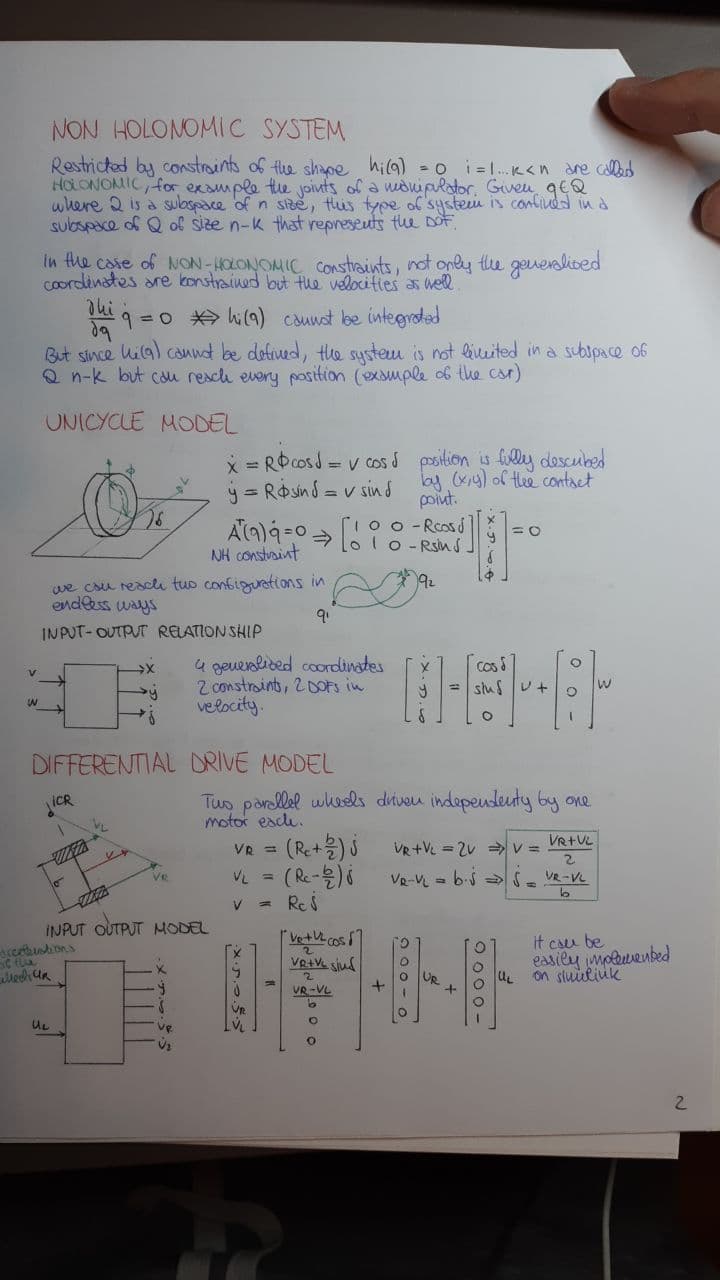 NON HOLONOMIC SYSTEM
Restricted by constraints of the shape hi(q) = 0 i = 1...k<n are called
HOLONOMIC, for example the joints of a manipulator. Given q∈Q
where Q is a subspace of n size, this type of system is confined in a
subspace of Q of size n-k that represents the DOF.
In the case of NON-HOLONOMIC constraints, not only the generalized
coordinates are constrained but the velocities as well.
∂hi/∂q q̇ = 0 ⇏ hi(q) cannot be integrated
But since hi(q) cannot be defined, the system is not limited in a subspace of
Q n-k but can reach every position (example of the car)
UNICYCLE MODEL
ẋ = RΦ̇cosδ = v cosδ position is fully described
ẏ = RΦ̇sinδ = v sinδ by (x,y) of the contact
point.
Φ v δ
Aᵀ(q)q̇=0 ⇒ [1 0 0 -Rcosδ; 0 1 0 -Rsinδ] [ẋ ẏ δ̇ Φ̇] = 0
NH constraint
we can reach two configurations in
endless ways
q1 q2
INPUT-OUTPUT RELATIONSHIP
v w → ẋ ẏ δ̇
4 generalized coordinates
2 constraints, 2 DOFs in
velocity.
[ẋ ẏ δ̇] = [cosδ sinδ 0] v + [0 0 1] w
DIFFERENTIAL DRIVE MODEL
ICR
VL
v
VR
Two parallel wheels driven independently by one
motor each.
VR = (Rc+b/2) δ̇ VR+VL = 2v ⇒ v = VR+VL/2
VL = (Rc-b/2) δ̇ VR-VL = b·δ̇ ⇒ δ̇ = VR-VL/b
v = Rc δ̇
INPUT OUTPUT MODEL
accelerations
of the
wheels UR
UL
ẋ
ẏ
δ̇
V̇R
V̇2
[ẋ ẏ δ̇ V̇R V̇L] = [VR+VL/2 cosδ VR+VL/2 sinδ VR-VL/b 0 0] + [0 0 0 1 0] UR + [0 0 0 0 1] UL
it can be
easily implemented
on simulink
2